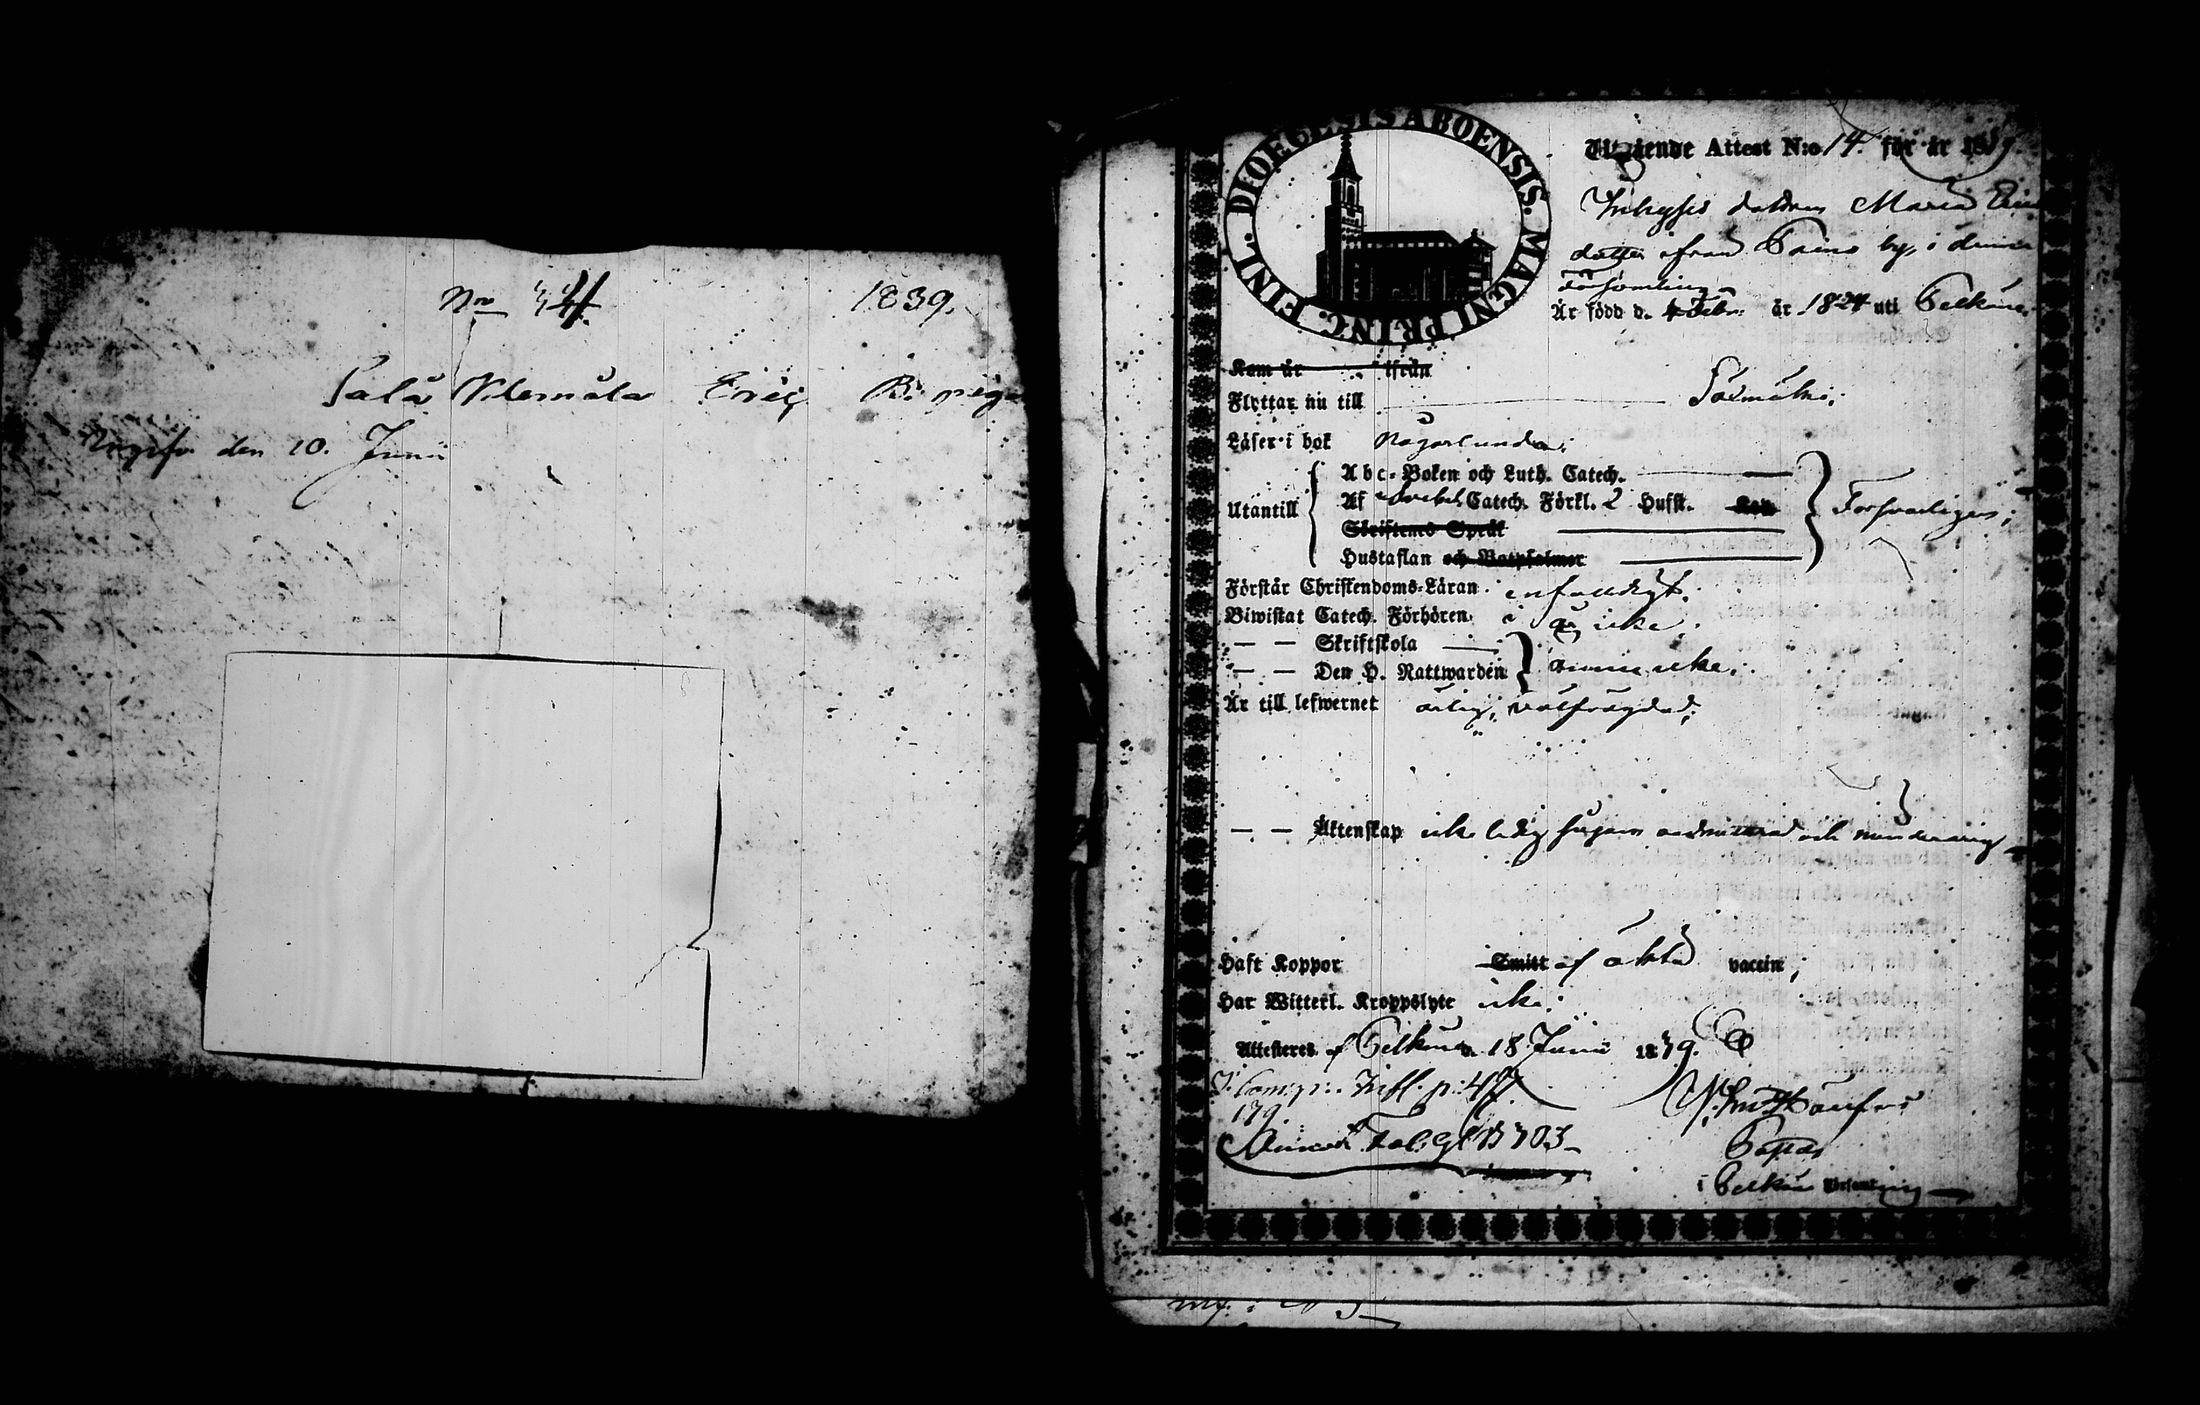 No 44. 1839.
Sala Nilemäla Eric B. piga
den 10. Junii
DIOECESIS ABOENSIS. MAGNI PRINC. FINL.
Utgående Attest N:o 14. för år 1839.
Inhyses dottren Maria
dotter ifrån by, i denna
Församling
Är född d. 4 Febr. år 1824 uti Pelkäne.
Kom år ifrån
Flyttar nu till
Läser i bok någorlunda.
Utantill
Abc-Boken och Luth. Catech.
Af Svebel. Catech. Förkl. 2 Hufst.
Skriftenes Språk
Hustaflan och Botpsalmer
Försvarligen;
Förstår Christendoms-Läran enfaldigt.
Biwistat Catech. Förhören i år icke.
— — Skriftskola
— — Den H. Nattwarden ännu icke.
Är till lefwernet ärlig, välfrägdad;
— — Äktenskap icke ledig såsom oadmitterad och minderårig
Haft Koppor Smitt af äkta vaccin;
Har Witterl. Kroppslyte icke.
Attesteras af Pelkäne d. 18 Junii 1839.
179.
703
Pastor
i Pelkäne Församling